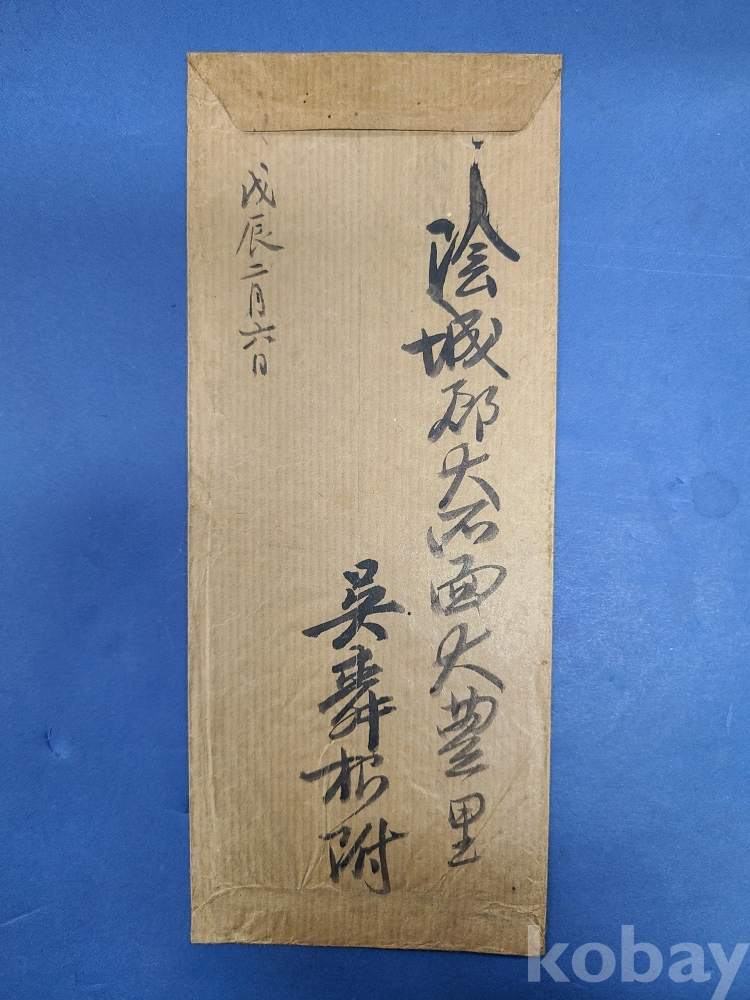 陰城郡大所面大豊里
吳根附
戊辰二月六日
kobay